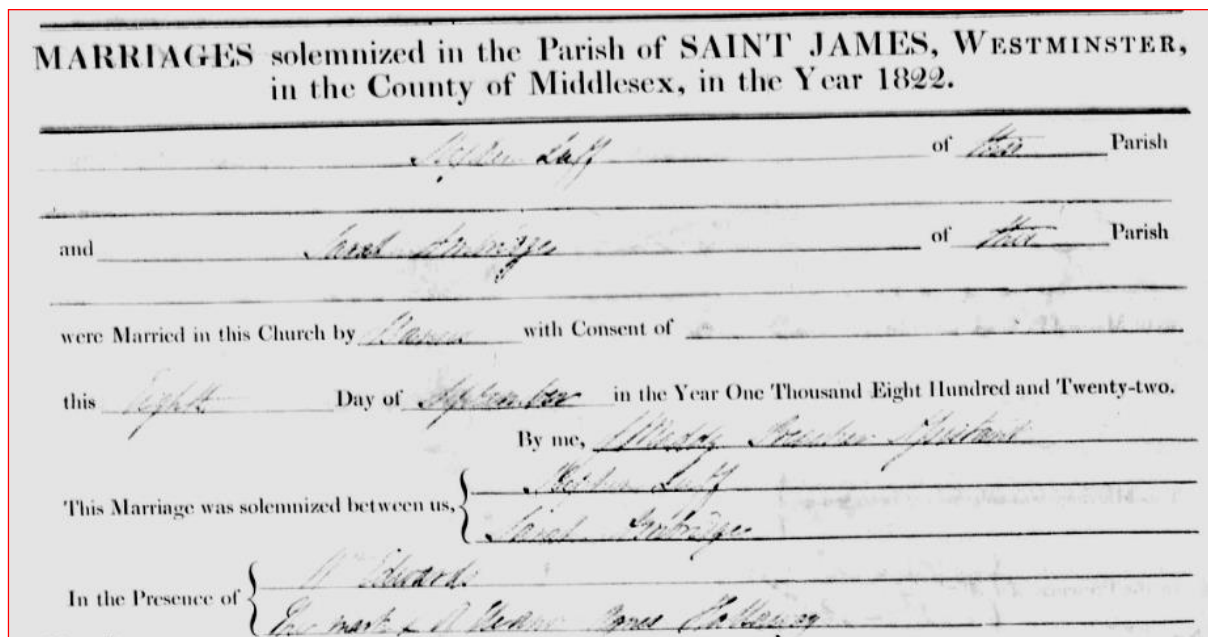 MARRIAGES solemnized in the Parish of SAINT JAMES, WESTMINSTER,
in the County of Middlesex, in the Year 1822.
Stephen Luff of this Parish
and Sarah of this Parish
were Married in this Church by Banns with Consent of
this Eighth Day of September in the Year One Thousand Eight Hundred and Twenty-two.
By me,
Stephen Luff
This Marriage was solemnized between us,
Sarah
Wm Edwards
In the Presence of
The mark x of Agnes